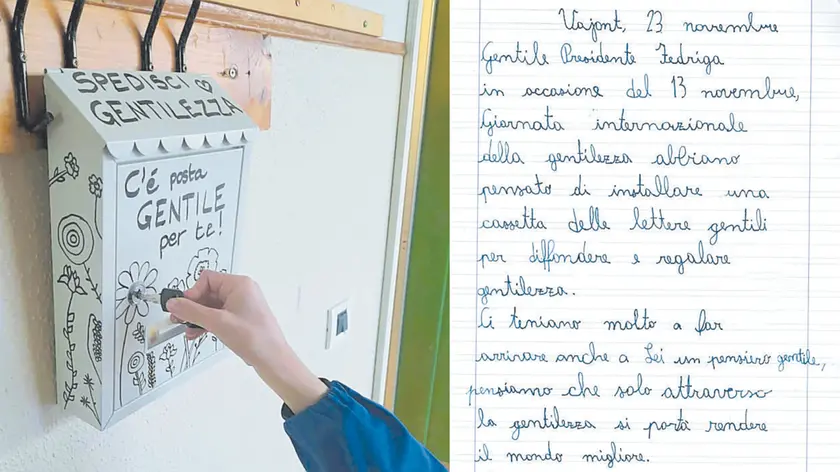 SPEDISCI
GENTILEZZA
C'é posta
GENTILE
per te!
Vajont, 23 novembre
Gentile Presidente Fedriga
in occasione del 13 novembre,
Giornata internazionale
della gentilezza abbiamo
pensato di installare una
cassetta delle lettere gentili
per diffondere e regalare
gentilezza.
Ci teniamo molto a far
arrivare anche a Lei un pensiero gentile,
pensiamo che solo attraverso
la gentilezza si potrà rendere
il mondo migliore.